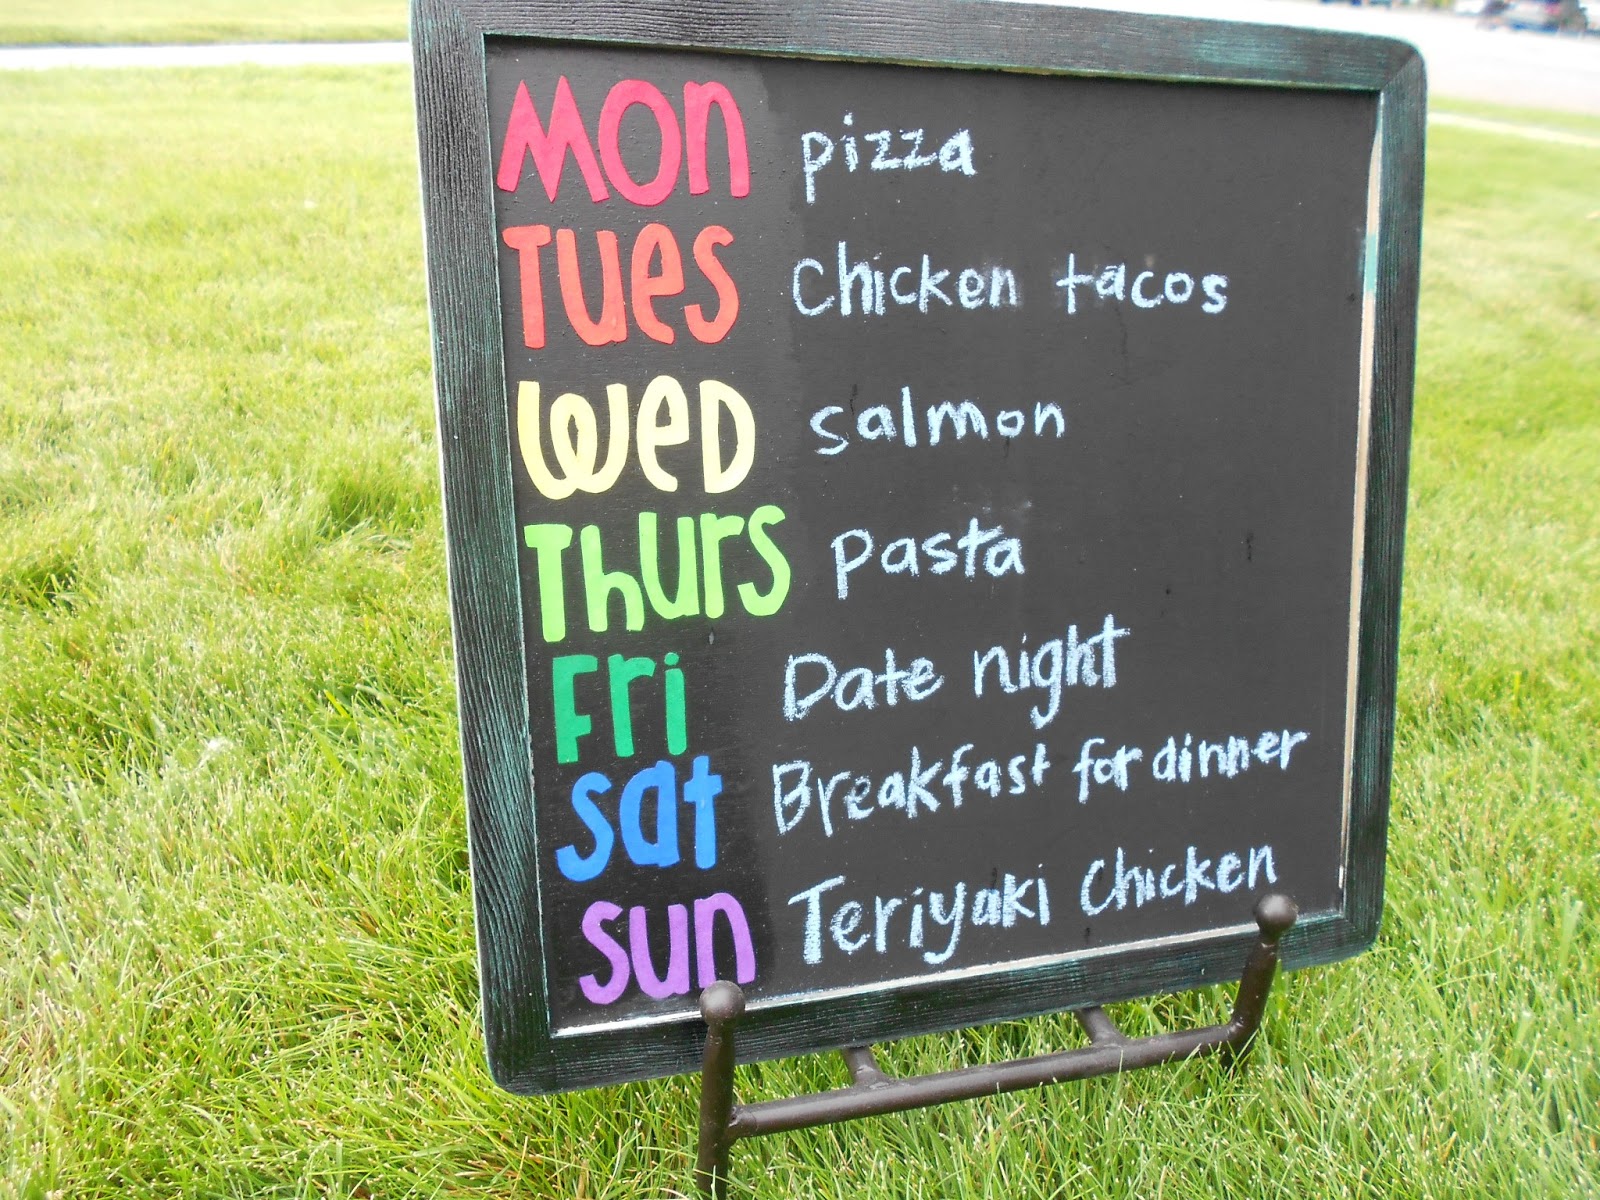 Mon pizza
Tues chicken tacos
Wed salmon
Thurs pasta
Fri Date night
Sat Breakfast for dinner
Sun Teriyaki chicken